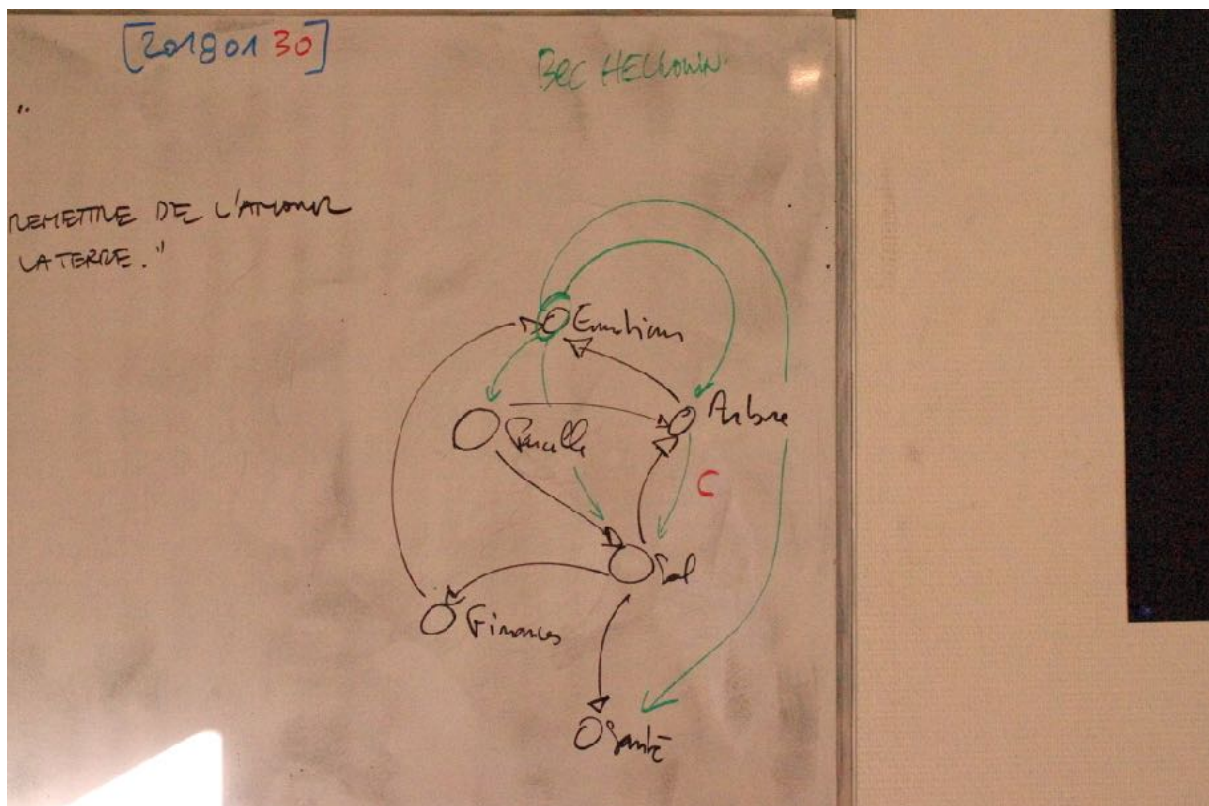 [20180130]
Bec HELLOUIN.
"
REMETTRE DE L'AMOUR
LA TERRE."
Emotions
Arbre
Parcelle
C
Sol
Finances
Santé